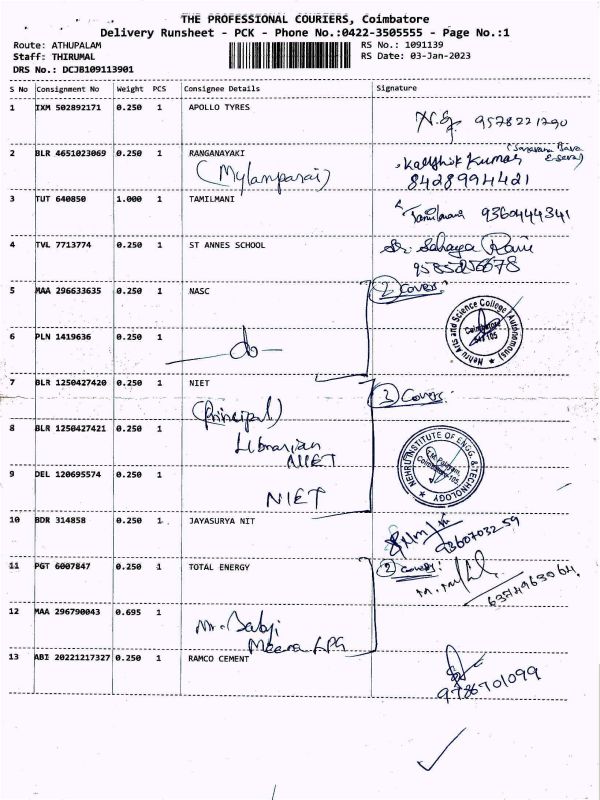 THE PROFESSIONAL COURIERS, Coimbatore
Delivery Runsheet - PCK - Phone No.:0422-3505555 - Page No.:1
Route: ATHUPALAM RS No.: 1091139
Staff: THIRUMAL RS Date: 03-Jan-2023
DRS No.: DCJB109113901
S No Consignment No Weight PCS Consignee Details Signature
1 IXM 502892171 0.250 1 APOLLO TYRES
9578221290
2 BLR 4651023069 0.250 1 RANGANAYAKI
(Mylampatai) Kaushik Kumar
8428994421
3 TUT 640850 1.000 1 TAMILMANI
9360444341
4 TVL 7713774 0.250 1 ST ANNES SCHOOL
Sr. Sahaya Rani
5 MAA 296633635 0.250 1 NASC 2 Covers
Nehru Arts and Science College (Autonomous)
Coimbatore
641 105
6 PLN 1419636 0.250 1
-do-
7 BLR 1250427420 0.250 1 NIET 3 Covers
(Principal)
8 BLR 1250427421 0.250 1
Librarian
NIET
NEHRU INSTITUTE OF ENGG. & TECHNOLOGY
9 DEL 120695574 0.250 1
NIET
10 BDR 314858 0.250 1 JAYASURYA NIT
9360703259
11 PGT 6007847 0.250 1 TOTAL ENERGY 2 covers
6374963064
12 MAA 296790043 0.695 1
Mr. Babji
Meera LPG
13 ABI 20221217327 0.250 1 RAMCO CEMENT
9786701099